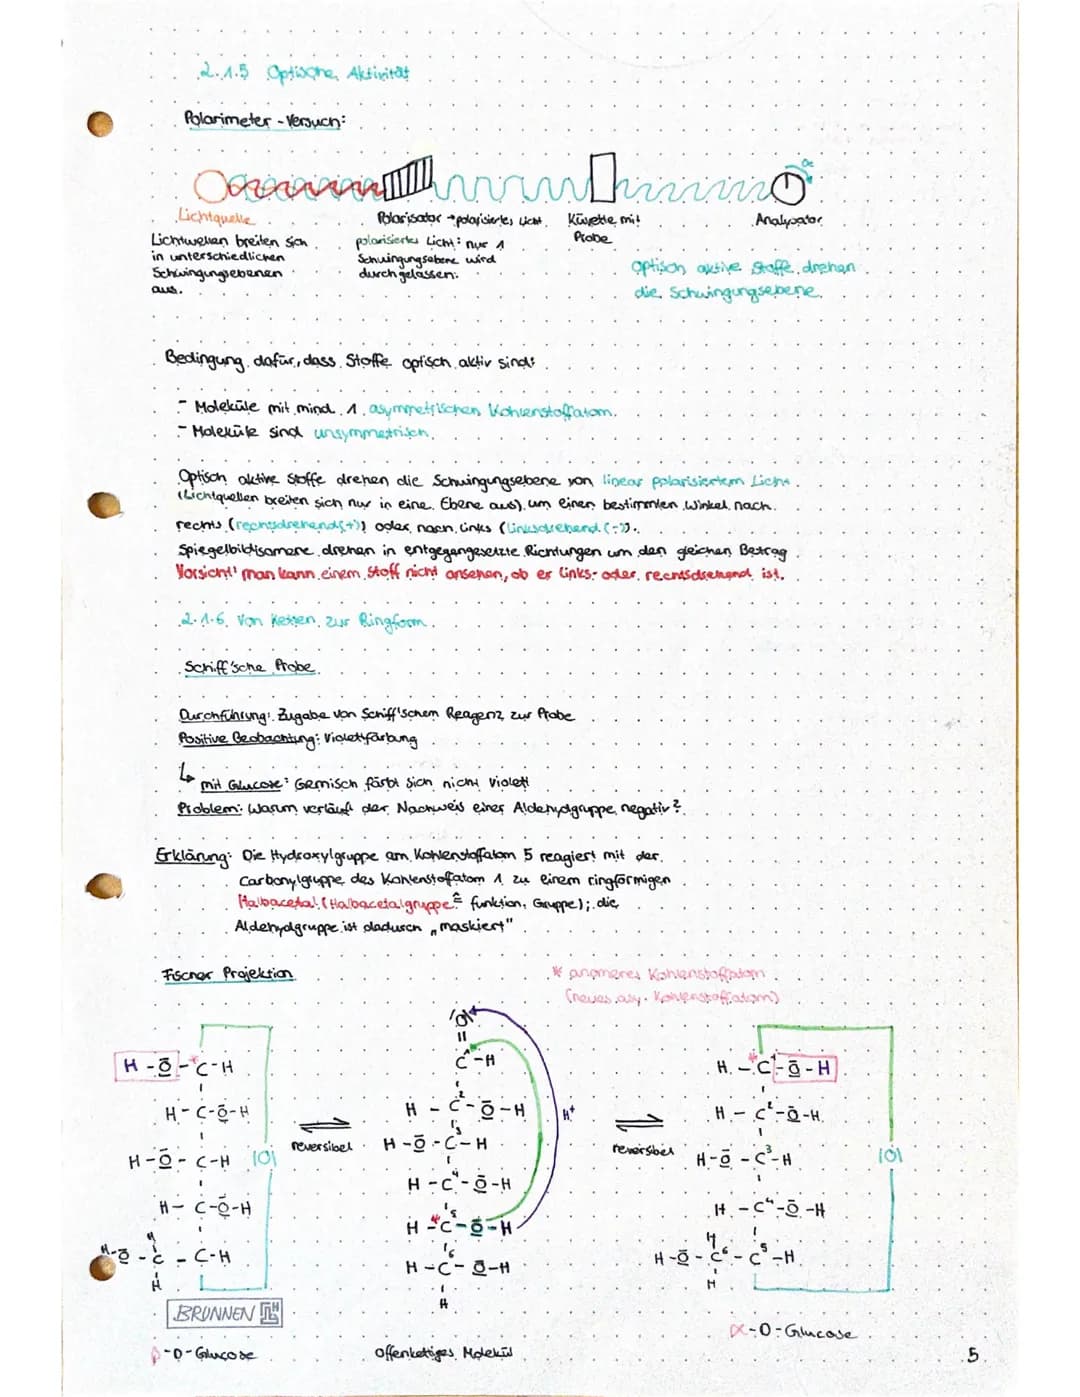 2.1.5 Optische Aktivität
Polarimeter-Versuch:
α
Lichtquelle
Polarisator → polarisiertes Licht
Küvette mit
Probe
Analysator
Lichtwellen breiten sich
in unterschiedlichen
Schwingungsebenen
aus.
polarisiertes Licht: nur 1
Schwingungsebene wird
durchgelassen.
Optisch aktive Stoffe drehen
die Schwingungsebene.
Bedingung dafür, dass Stoffe optisch aktiv sind:
- Moleküle mit mind. 1 asymmetrischen Kohlenstoffatom.
- Moleküle sind unsymmetrisch.
Optisch aktive Stoffe drehen die Schwingungsebene von linear polarisiertem Licht
(Lichtquellen breiten sich nur in eine Ebene aus) um einen bestimmten Winkel nach
rechts (rechtsdrehend(+)) oder nach links (linksdrehend (-)).
Spiegelbildisomere drehen in entgegengesetzte Richtungen um den gleichen Betrag
Vorsicht! man kann einem Stoff nicht ansehen, ob er links- oder rechtsdrehend ist.
2.1.6. Von Ketten zur Ringform.
Schiff'sche Probe
Durchführung: Zugabe von Schiff'schem Reagenz zur Probe
Positive Beobachtung: Violettfärbung
↳ mit Glucose: Gemisch färbt sich nicht violett
Problem: Warum verläuft der Nachweis einer Aldehydgruppe negativ?
Erklärung: Die Hydroxylgruppe am Kohlenstoffatom 5 reagiert mit der
Carbonylgruppe des Kohlenstoffatom 1 zu einem ringförmigen
Halbacetal (Halbacetalgruppe ≙ funktion. Gruppe); die
Aldehydgruppe ist dadurch „maskiert"
Fischer Projektion
* anomeres Kohlenstoffatom
(neues asy. Kohlenstoffatom)
H-O-*C-H
H-C-O-H
H-O-C-H |O|
H-C-O-H
H
H-O-C-C-H
H
BRUNNEN
β-D-Glucose
reversibel
|O|
||
C¹-H
H-C²-O-H
H-O-C³-H
H-C⁴-O-H
H-*C⁵-O-H
H-C⁶-O-H
H
H⁺
Offenkettiges Molekül
reversibel
H-*C¹-O-H
H-C²-O-H
H-O-C³-H |O|
H-C⁴-O-H
H
H-O-C⁶-C⁵-H
H
α-D-Glucose
5